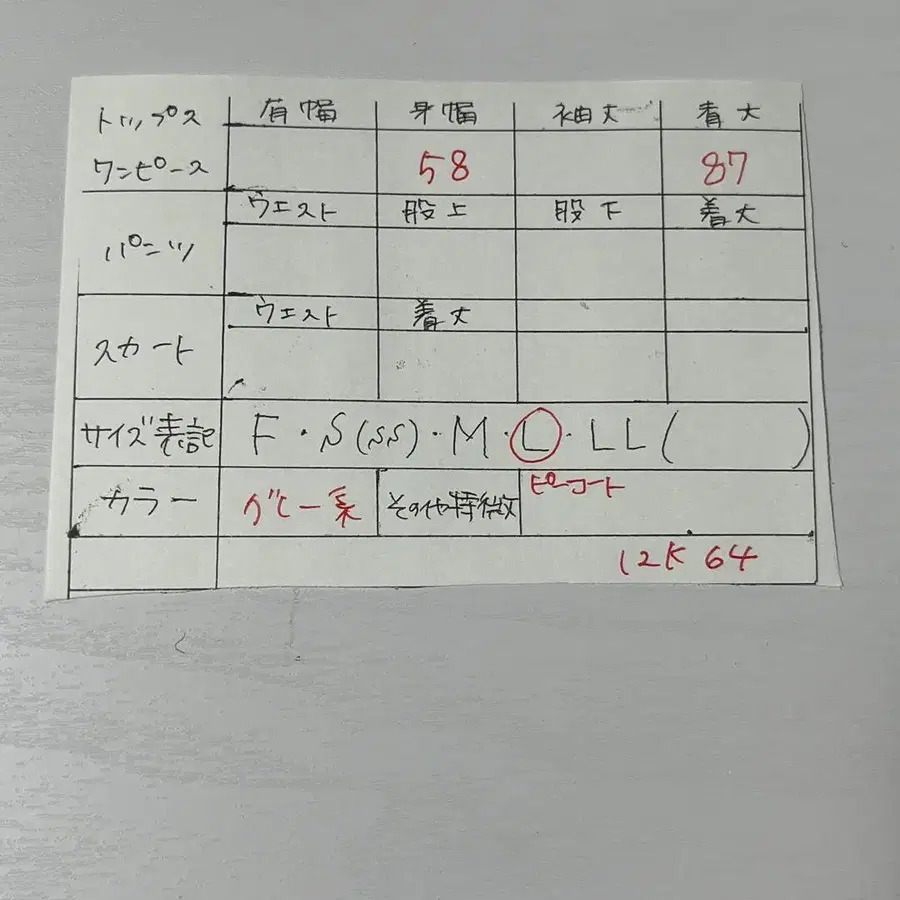 トップス ワンピース 肩幅 身幅 袖丈 着丈
58 87
パンツ ウエスト 股上 股下 着丈
スカート ウエスト 着丈
サイズ表記 F・S(SS)・M・L・LL( )
カラー グレー系 その他特徴 ピーコート
12K 64